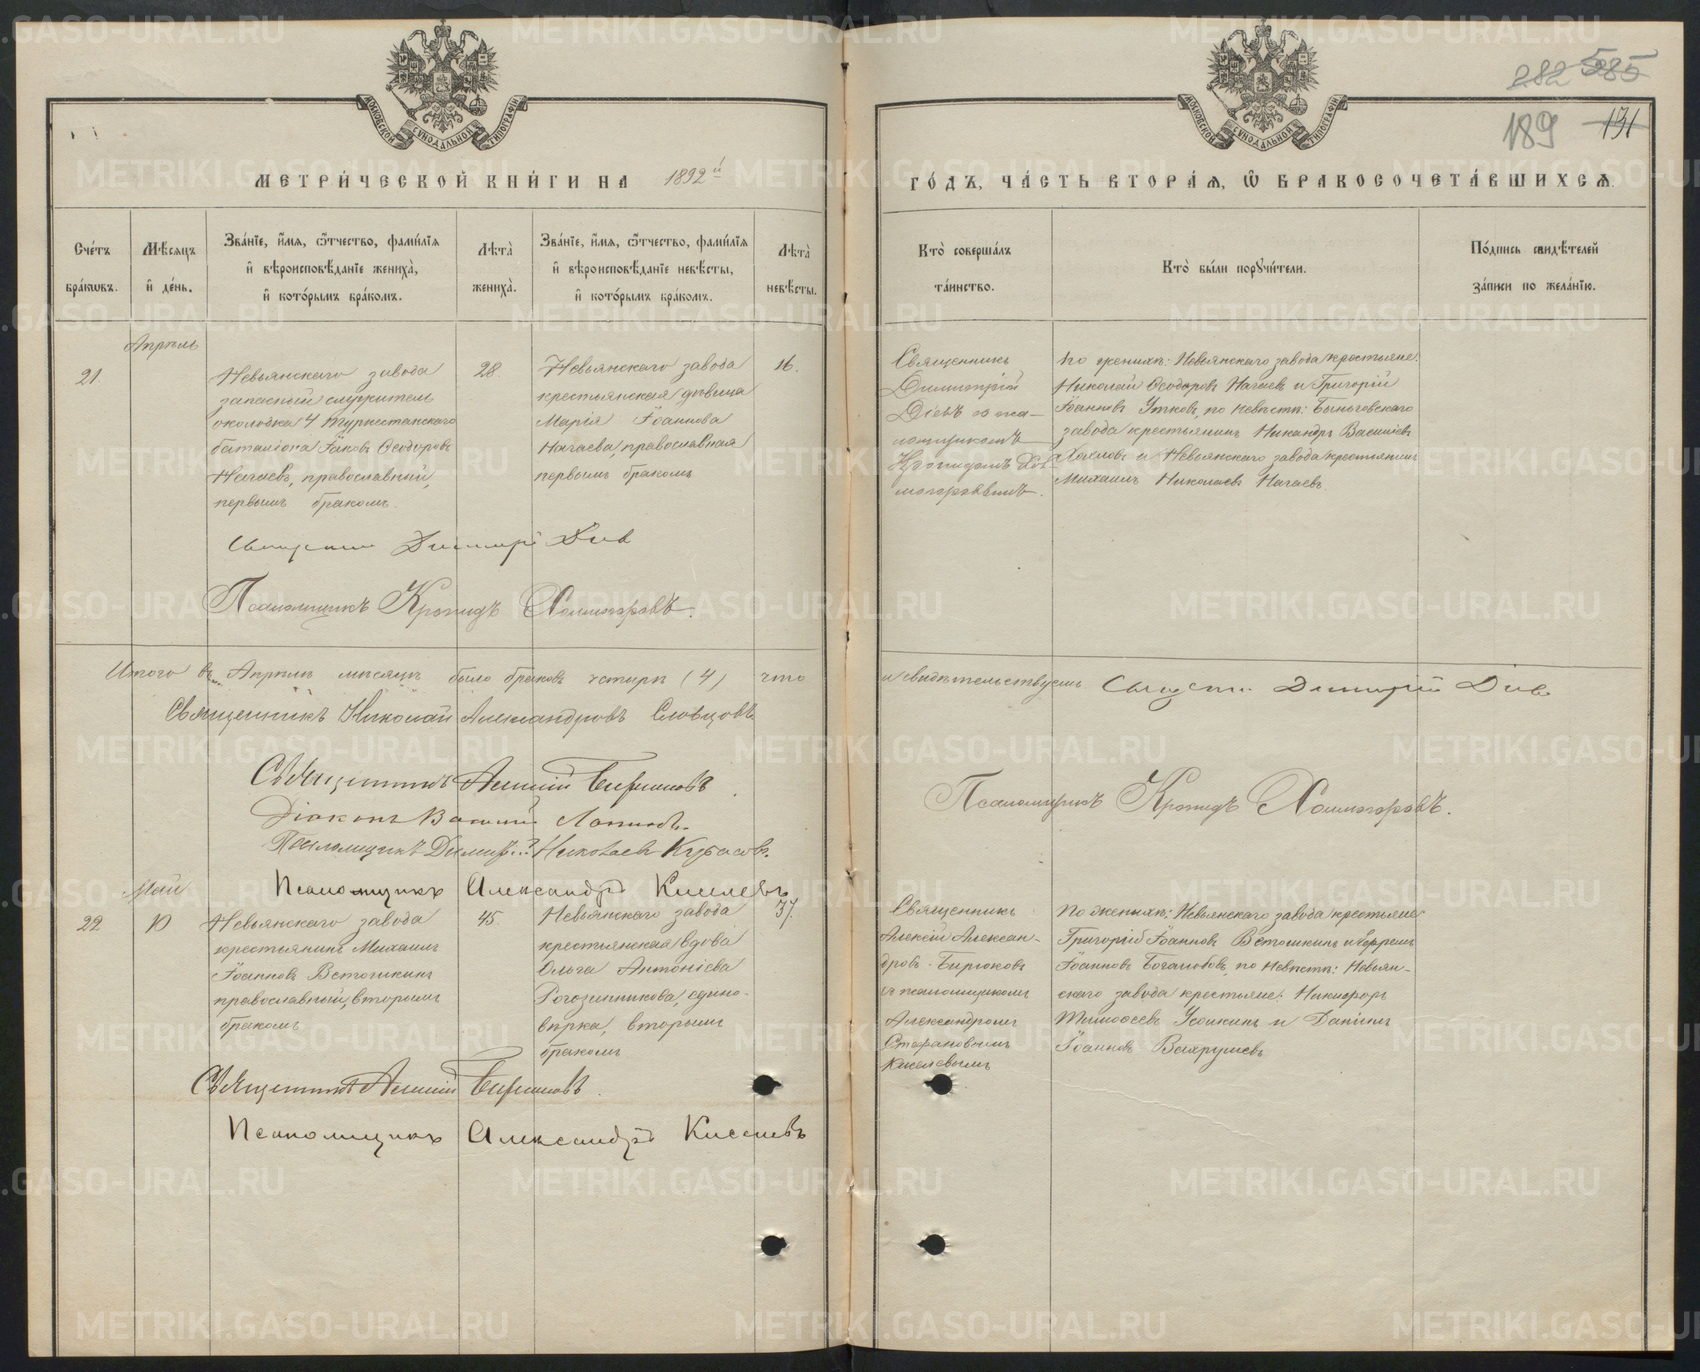 282 585
189 131
МОСКОВСКОЙ СѴНОДАЛЬНОЙ ТИПОГРАФІИ
МОСКОВСКОЙ СѴНОДАЛЬНОЙ ТИПОГРАФІИ
МЕТРИ́ЧЕСКОЙ КНИ́ГИ НА 1892й
ГО́ДЪ, ЧА́СТЬ ВТОРА́Я, Ѽ БРАКОСОЧЕТА́ВШИХСЯ.
Сче́тъ
бра́кѡвъ.
Мѣ́сяцъ
и҆ де́нь.
Зва́нїе, и҆́мя, ѻ҆́тчество, фами́лїя
и҆ вѣроисповѣ́данїе жениха̀,
и҆ кото́рымъ бра́комъ.
Лѣта̀
жениха̀.
Зва́нїе, и҆́мя, ѻ҆́тчество, фами́лїя
и҆ вѣроисповѣ́данїе невѣ́сты,
и҆ кото́рымъ бра́комъ.
Лѣта̀
невѣ́сты.
Кто̀ соверша́лъ
та́инство.
Кто̀ бы́ли порꙋчи́тели.
По́дпись свидѣ́телей
за́писи по жела́нїю.
Апрѣль
21.
Невьянскаго завода
запасный служитель
околодка 4 Туркестанскаго
баталіона Іаковъ Ѳеодоровъ
Нагаевъ, православный,
первымъ бракомъ.
28.
Невьянскаго завода
крестьянская дѣвица
Марія Іоаннова
Нагаева, православная
первымъ бракомъ
16.
Священникъ
Димитрій
Діевъ со пса-
ломщикомъ
Кронидомъ Хол-
могоровымъ.
По женихѣ: Невьянскаго завода крестьяне:
Николай Ѳеодоровъ Нагаевъ и Григорій
Іоанновъ Утковъ, по невѣстѣ: Быньговскаго
завода крестьянинъ Никандръ Василіевъ
и Невьянскаго завода крестьянинъ
Михаилъ Николаевъ Нагаевъ.
Священникъ Димитрій Діевъ
Псаломщикъ Кронидъ Холмогоровъ.
Итого въ Апрѣлѣ мѣсяцѣ было браковъ четыре (4) что
и свидѣтельствуемъ Священникъ Димитрій Діевъ
Священникъ Николай Александровъ Словцовъ
Священникъ Алексій Бирюковъ
Діаконъ Василій
Псаломщикъ Димитрій Николаевъ
Псаломщикъ Кронидъ Холмогоровъ.
Псаломщикъ Александръ Киселевъ
Май
22
10
Невьянскаго завода
крестьянинъ Михаилъ
Іоанновъ Ветошкинъ
православный, вторымъ
бракомъ
45.
Невьянскаго завода
крестьянская вдова
Ольга Антоніева
Рогозинникова, едино-
вѣрка, вторымъ
бракомъ
37.
Священникъ
Алексій Алексан-
дровъ Бирюковъ
съ псаломщикомъ
Александромъ
Стефановымъ
Киселевымъ
По женихѣ: Невьянскаго завода крестьяне
Григорій Іоанновъ Ветошкинъ и
Іоанновъ по невѣстѣ: Невьян-
скаго завода крестьяне: Никифоръ
Тимоѳеевъ и Даніилъ
Іоанновъ Вахрушевъ
Священникъ Алексій Бирюковъ.
Псаломщикъ Александръ Киселевъ
METRIKI.GASO-URAL.RU